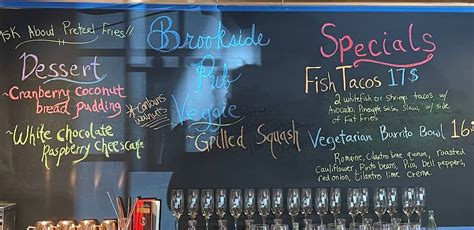 ASK About Pretzel Fries!!
Dessert
~Cranberry coconut
bread pudding
*contains
walnuts*
~White chocolate
Raspberry Cheesecake
Brookside
Pub
Veggie
~Grilled Squash
Specials
Fish Tacos 17$
2 whitefish or shrimp tacos w/
Avocado, Pineapple Salsa, Slaw, w/ side
of Fat Fries
Vegetarian Burrito Bowl 16
Romaine, Cilantro lime quinoa, roasted
Cauliflower, Pinto beans, Pico, bell peppers,
red onion, Cilantro lime crema